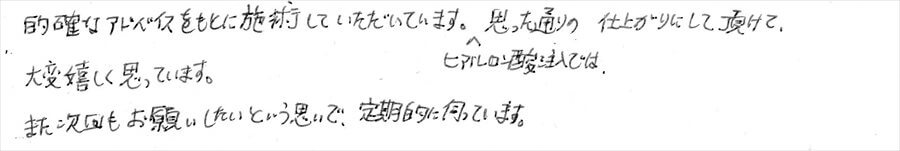 的確なアドバイスをもとに施術していただいています。思った通りの仕上がりにして頂けて、
ヒアルロン酸注入では、
大変嬉しく思っています。
また次回もお願いしたいという思いで、定期的に伺っています。